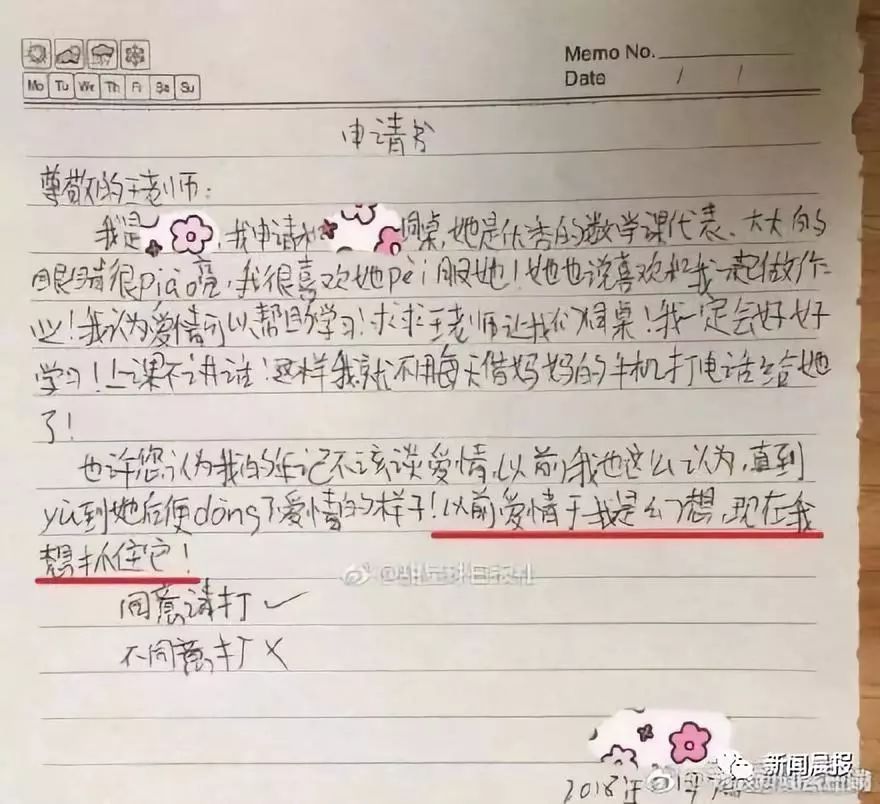 Memo No.
Mo Tu We Th Fr Sa Su
Date / /
申请书
尊敬的王老师:
我是 ,我申请和 同桌,她是优秀的数学课代表、大大的
眼睛很piào亮,我很喜欢她pèi服她!她也说喜欢和我一起做作
业!我认为爱情可以帮助学习!求求王老师让我们同桌!我一定会好好
学习!上课不讲话!这样我就不用每天借妈妈的手机打电话给她
了!
也许您认为我的年记不该谈爱情,以前我也这么认为,直到
yù到她后便dǒng了爱情的样子!以前爱情于我是幻想,现在我
想抓住它!
同意请打✓
不同意打×
2018年
新闻晨报